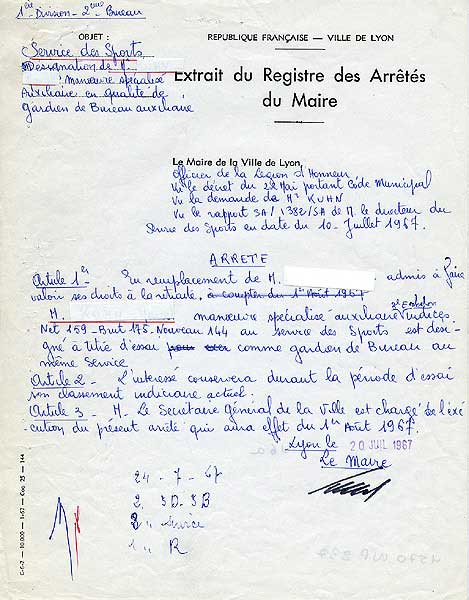 1ère Division - 2ème Bureau
OBJET :
Service des Sports
Désignation de M.
manœuvre spécialisé
Auxiliaire en qualité de
gardien de Bureau auxiliaire
REPUBLIQUE FRANÇAISE — VILLE DE LYON
Extrait du Registre des Arrêtés
du Maire
Le Maire de la Ville de Lyon,
Officier de la Légion d'Honneur
Vu le décret du 22 Mai portant Code Municipal
Vu la demande de Mr KUHN
Vu le rapport SA/1382/SA de M. le directeur du
Service des Sports en date du 10 Juillet 1967.
ARRETE
Article 1er En remplacement de M. admis à faire
valoir ses droits à la retraite, à compter du 1er Août 1967
M. manœuvre spécialisé auxiliaire 2e Echelon indices.
Net 159 - Brut 175. Nouveau 144 au service des Sports est dési-
gné à titre d'essai comme gardien de Bureau au
même service.
Article 2 - L'intéressé conservera durant la période d'essai
son classement indiciaire actuel.
Article 3 - M. Le Secrétaire Général de la Ville est chargé de l'exé-
cution du présent arrêté qui aura effet du 1er Août 1967.
Lyon le 20 JUIL 1967
Le Maire
24 - 7 - 67
2. SD. SB
2 " Service
1 " R
C-5-2 — 10.000 - 1-67 — Coq. 25 — 144